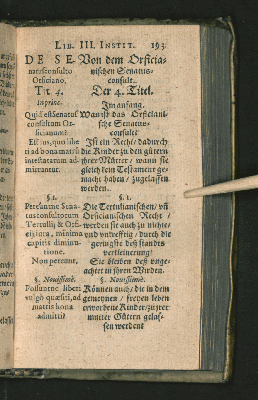 LIB. III. INSTIT. 193
DE SE-
natusconsulto
Orficiano.
TIT. 4.
In princ.
Quid est Senatus
consultum Or-
ficianum?
Est ius, quo libe
ri ad bona matrum
intestatarum ad-
mittuntur.
§. 1.
Petuntne Sena-
tusconsultorum
Tertulli & Orfi-
ciani iura, minima
capitis diminu-
tione.
Non perimunt.
§. Novissime.
Possuntne liberi
vulgò quæsiti, ad
matris bona
admitti?
Von dem Orficia-
nischen Senatus-
consult.
Der 4. Titel.
Im anfang.
Was ist das Orficiani-
sche Senatus-
consult?
Ist ein Recht / dadurch
die Kinder zu den gütern
ihrer Mütter / wann sie
gleich kein Testament ge-
macht haben / zugelassen
werden.
§. 1.
Die Tertulianischen / un̄
Orficianischen Recht /
werden sie auch zu nichte /
und unkrefftig / durch die
geringste deß standts
verkleinerung?
Sie bleiben deß unge-
achtet in ihren Würden.
§. Novissimè.
Können auch / die in dem
gemeynen / freyen leben
erworbene Kinder / zu jrer
mutter Gütern gelas-
sen werden?